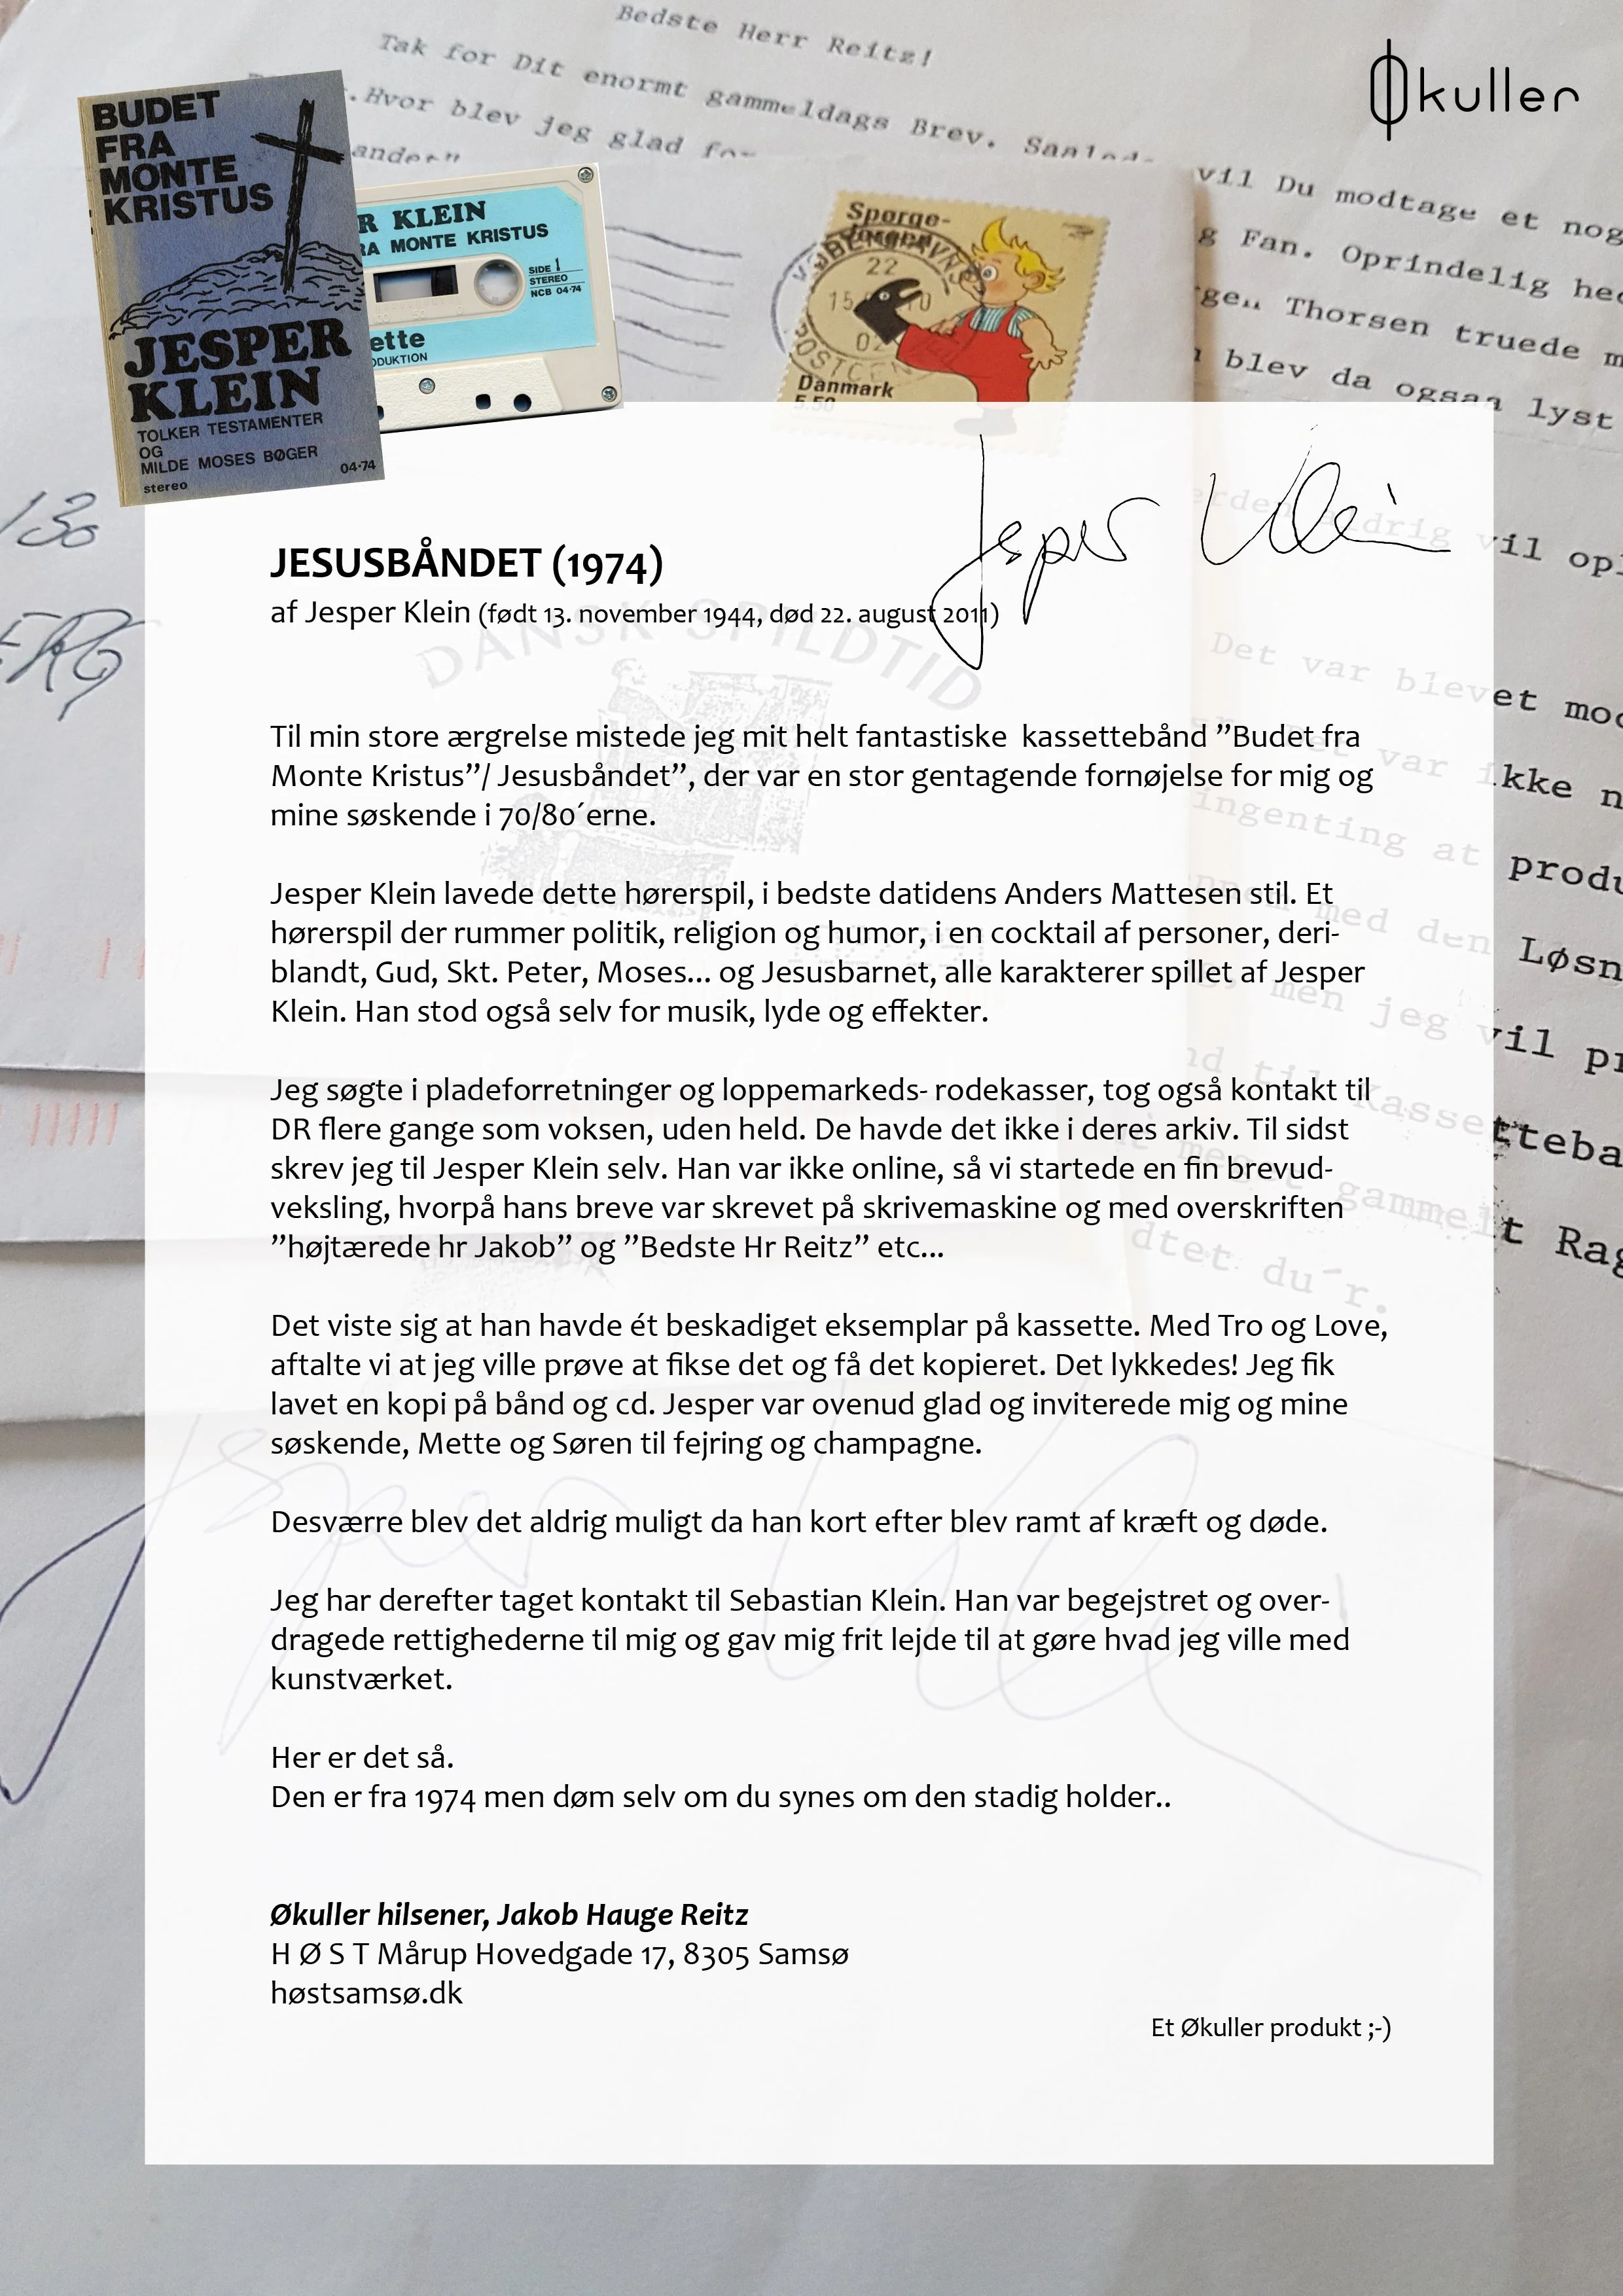 Bedste Herr Reitz!
Tak for Dit enormt gammeldags Brev.
.Hvor blev jeg glad for
vil Du modtage et nog
g Fan. Oprindelig hed
Thorsen truede m
blev da ogsaa lyst
Økuller
BUDET
FRA
MONTE
KRISTUS
JESPER
KLEIN
TOLKER TESTAMENTER
OG
MILDE MOSES BØGER
04-74
stereo
R KLEIN
RA MONTE KRISTUS
SIDE 1
STEREO
NCB 04-74
ette
ODUKTION
Spørge-
Jørgen
22
02
Danmark
5.50
130
ERG
Jesper Klein
vil opl
JESUSBÅNDET (1974)
af Jesper Klein (født 13. november 1944, død 22. august 2011)
DANSK SPILDTID
Det var blevet mod
Det var ikke n
ingenting at produ
med den Løsn
men jeg vil pr
til Kassetteba
meget gammelt Rag
dtet du´r.
Til min store ærgrelse mistede jeg mit helt fantastiske kassettebånd ”Budet fra
Monte Kristus”/ Jesusbåndet”, der var en stor gentagende fornøjelse for mig og
mine søskende i 70/80´erne.
Jesper Klein lavede dette hørerspil, i bedste datidens Anders Mattesen stil. Et
hørerspil der rummer politik, religion og humor, i en cocktail af personer, deri-
blandt, Gud, Skt. Peter, Moses... og Jesusbarnet, alle karakterer spillet af Jesper
Klein. Han stod også selv for musik, lyde og effekter.
Jeg søgte i pladeforretninger og loppemarkeds- rodekasser, tog også kontakt til
DR flere gange som voksen, uden held. De havde det ikke i deres arkiv. Til sidst
skrev jeg til Jesper Klein selv. Han var ikke online, så vi startede en fin brevud-
veksling, hvorpå hans breve var skrevet på skrivemaskine og med overskriften
”højtærede hr Jakob” og ”Bedste Hr Reitz” etc...
Det viste sig at han havde ét beskadiget eksemplar på kassette. Med Tro og Love,
aftalte vi at jeg ville prøve at fikse det og få det kopieret. Det lykkedes! Jeg fik
lavet en kopi på bånd og cd. Jesper var ovenud glad og inviterede mig og mine
søskende, Mette og Søren til fejring og champagne.
Desværre blev det aldrig muligt da han kort efter blev ramt af kræft og døde.
Jeg har derefter taget kontakt til Sebastian Klein. Han var begejstret og over-
dragede rettighederne til mig og gav mig frit lejde til at gøre hvad jeg ville med
kunstværket.
Her er det så.
Den er fra 1974 men døm selv om du synes om den stadig holder..
Økuller hilsener, Jakob Hauge Reitz
H Ø S T Mårup Hovedgade 17, 8305 Samsø
høstsamsø.dk
Et Økuller produkt ;-)